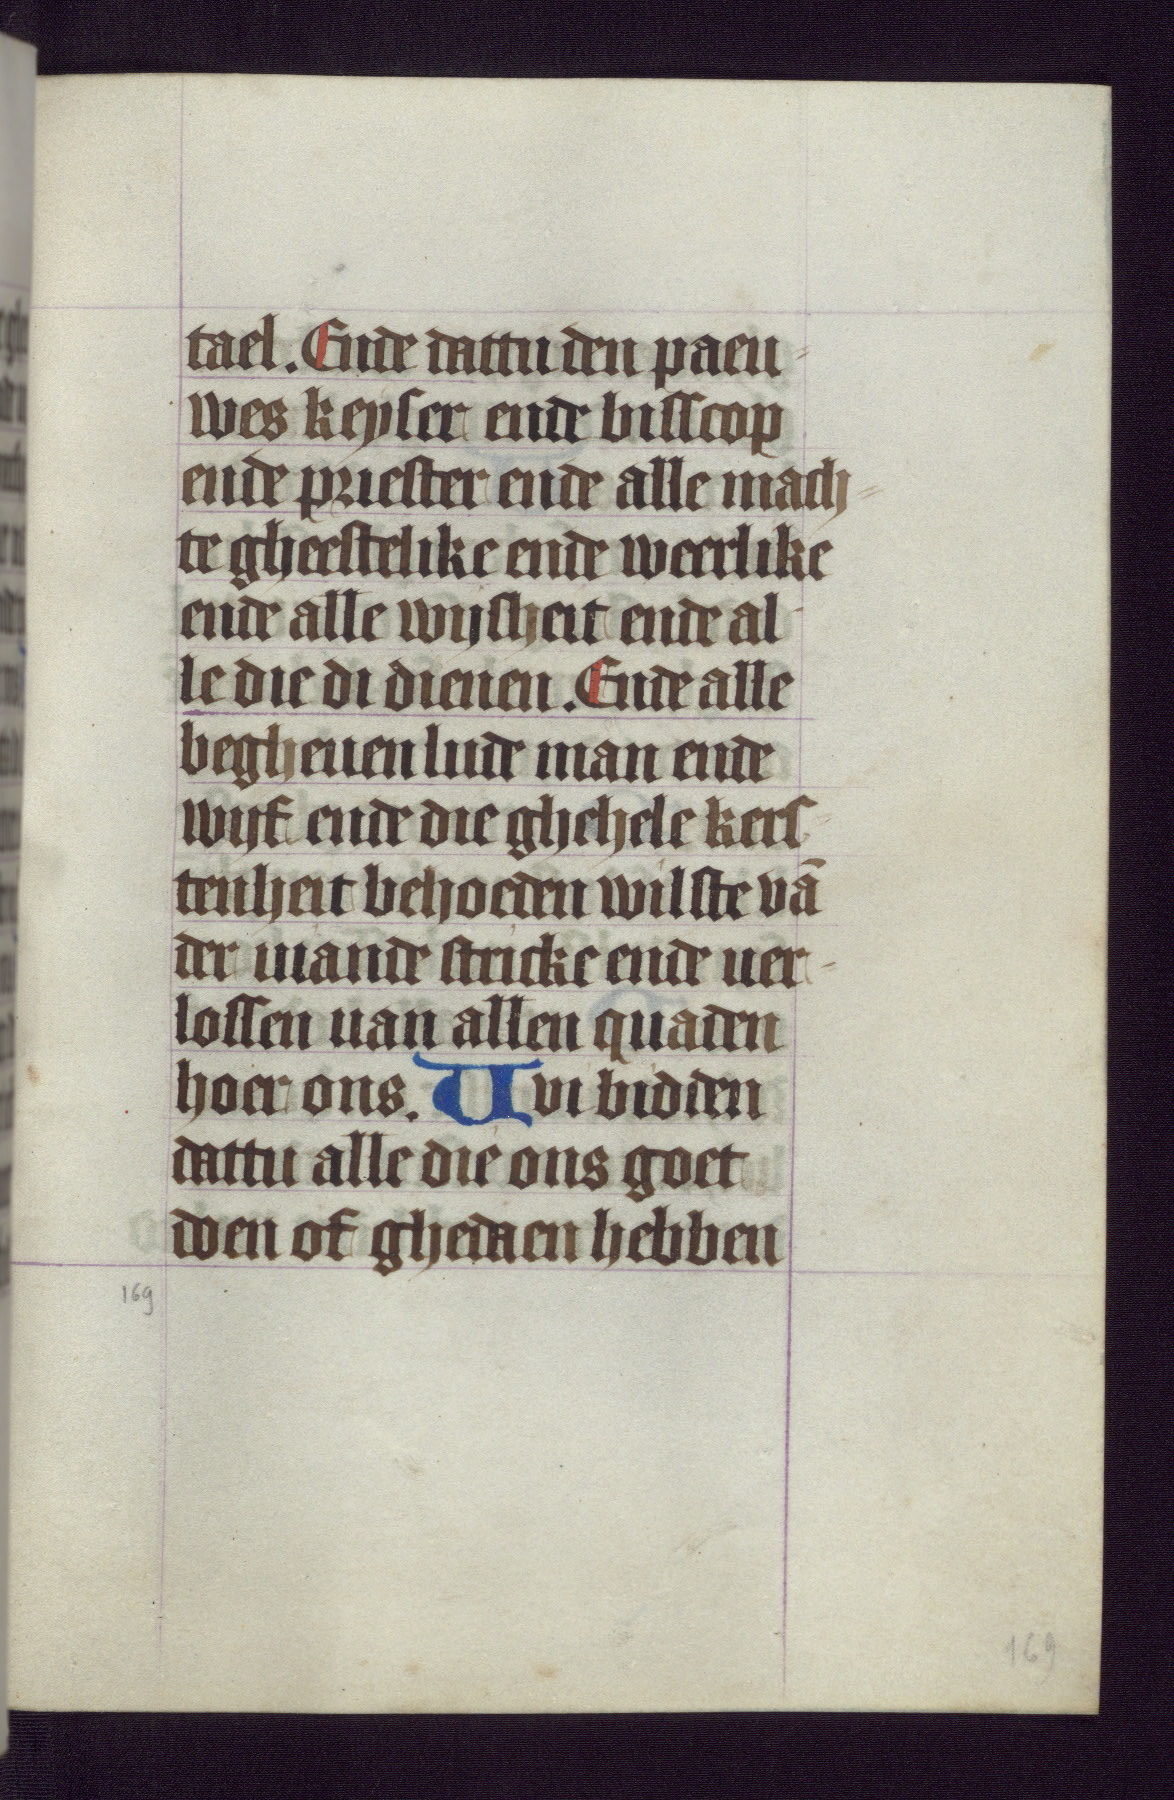 tael. Ende dattu den paeu-
wes keyser ende bisscop
ende priester ende alle mach-
te gheestelike ende weerlike
ende alle wijsheit ende al-
le die di dienen. Ende alle
begheuen lude man ende
wijf ende die ghehele kers-
tenheit behoeden wilste vā
der uiande stricke ende uer-
lossen uan allen quaden
hoer ons. Wi bidden
dattu alle die ons goet
doen of ghedaen hebben
169
169